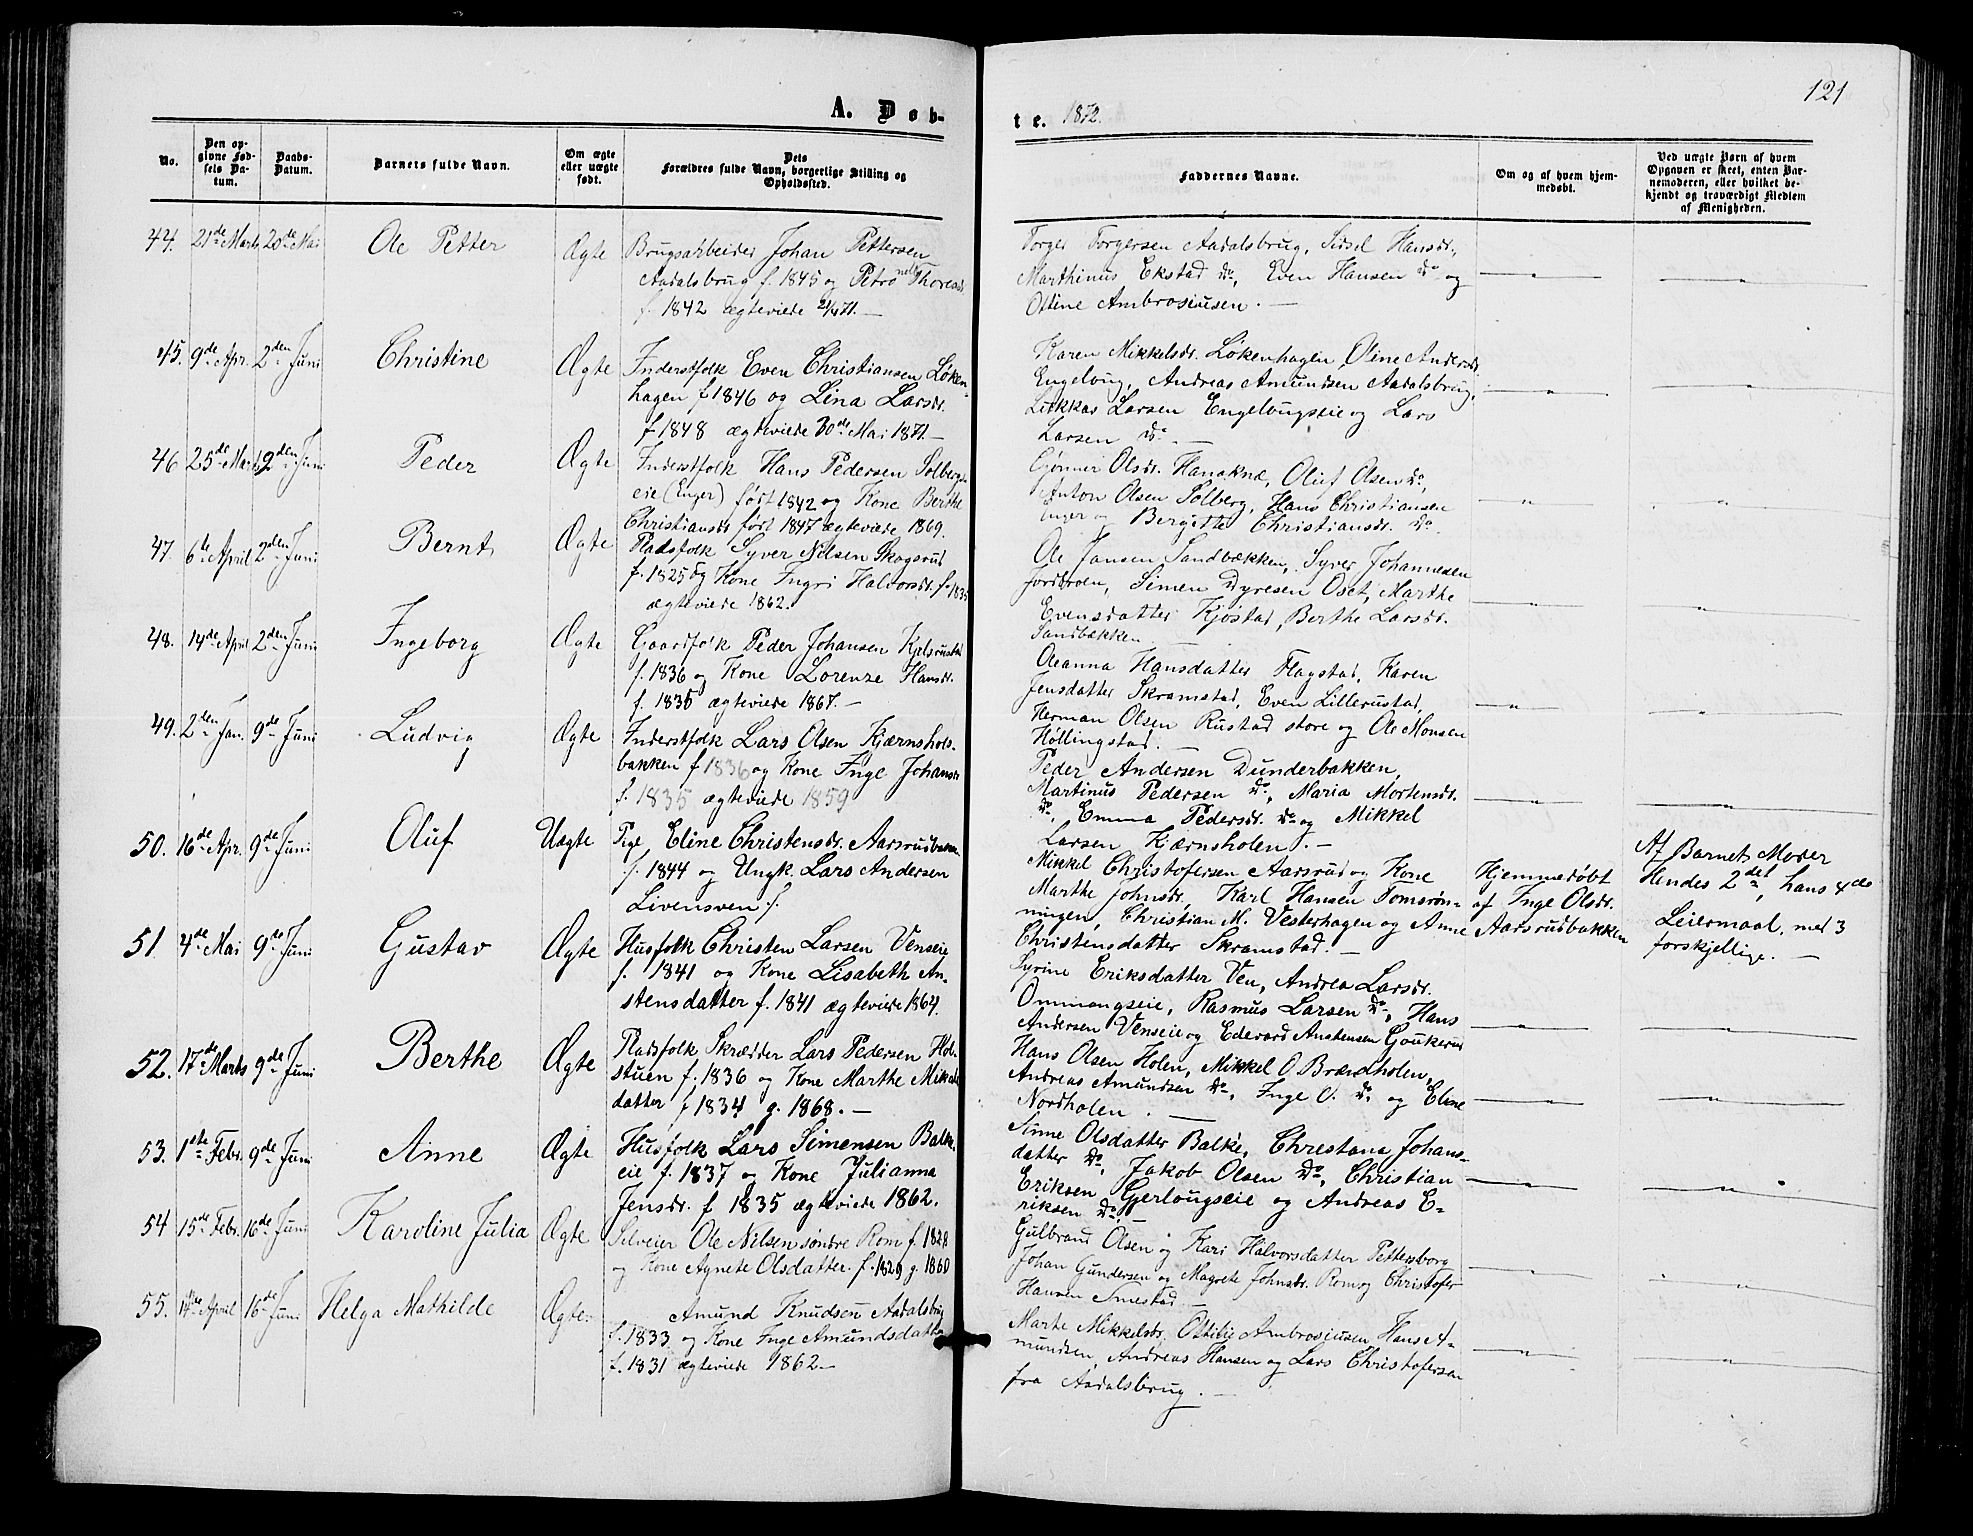 121
A. Døb-
te. 1872.
No.
Den op-
givne Fød-
sels Da-
tum.
Daabs-
Datum.
Barnets fulde Navn.
Om ægte
eller uægte
født.
Dets
Forældres fulde Navn, borgerlige Stilling og
Opholdssted.
Faddernes Navne.
Om og af hvem hjem-
medøbt.
Ved uægte Børn af hvem
Opgaven er skeet, enten Bar-
nemoderen, eller hvilket be-
kjendt og troværdigt Medlem
af Menigheden.
44. 21de Marts 20de Mai Ole Petter Ægte
Brugsarbeider Johan Pettersen
Aadalsbrug f. 1845 og Petronelle Thoresd.
f. 1842 ægteviede 21/4 71. —
Torger Torgersen Aadalsbrug, Sidsel Hansdr.,
Marthinus Ekstad do, Even Hansen do og
Ottine Ambrosiusen. —
— " —
— " —
45. 9de Apr. 2den Juni Christine Ægte
Inderstfolk Even Christiansen Løken-
hagen f 1846 og Lina Larsdr.
f 1848 ægteviede 30de Mai 1871. —
Karen Mikkelsdr. Løkenhagen, Oline Andersdr.
Engeloug, Andreas Amundsen Aadalsbrug,
Lukkas Larsen Engelougseie og Lars
Larsen do. —
— " —
— " —
46 25de Marts 2den Juni Peder Ægte
Inderstfolk Hans Pedersen Solbergs-
eie (Enger) født 1842 og Kone Berthe
Christiansdr født 1847 ægteviede 1869.
Gønner Olsdr. Hanaknæ, Oluf Olsen do,
Anton Olsen Solberg, Hans Christiansen
Enger og Bergitte Christiansdr. do.
— " —
— " —
47. 6te April 2den Juni Bernt Ægte
Pladsfolk Syver Nilsen Skogsrud
f. 1825 og Kone Ingri Halvorsdr. f. 1835
ægteviede 1862.
Ole Jansen Sandbækken, Syver Johannesen
Jordbroen, Simen Dyresen Oset, Marthe
Evensdatter Kjøstad, Berthe Larsdr.
Sandbækken. —
— " —
— " —
48. 14de April 2den Juni Ingeborg Ægte
Gaardfolk Peder Johansen Kjelsrustad
f. 1836 og Kone Lorenze Hansdr.
f. 1835 ægteviede 1867. —
Oleanna Hansdatter Flagstad, Karen
Jensdatter Skramstad, Even Lillerustad,
Herman Olsen Rustad store og Ole Monsen
Høllingstad. —
— " —
— " —
49. 2den Jan. 9de Juni Ludvig Ægte
Inderstfolk Lars Olsen Kjærnshols-
bakken f 1836 og Kone Inge Johansdr
f. 1835 ægteviede 1859
Peder Andersen Dunderbakken,
Martinus Pedersen do, Maria Mortensdr.
do, Emma Pedersdr. do og Mikkel
Larsen Kjærnsholen. —
— " —
— " —
50. 16de Apr. 9de Juni Oluf Uægte
Pige Eline Christensdr. Aarsrudbakken
f. 1844 og Ungk. Lars Andersen
Livensven /.
Mikkel Christofersen Aarsrud og Kone
Marthe Johnsdr, Karl Hansen Tomsrøn-
ningen, Christian M. Vesterhagen og Anne
Christensdatter Skramstad. —
Hjemmedøbt
af Inge Olsdr.
Aarsrudbakken
Af Barnets Moder
Hendes 2det, hans 4de
Leiermaal, med 3
forskjellige. —
51. 4de Mai 9de Juni Gustav Ægte
Husfolk Christen Larsen Venseie
f. 1841 og Kone Lisabeth An-
stensdatter f. 1841 ægteviede 1864.
Syrine Eriksdatter Ven, Andrea Larsdr.
Ommangseie, Rasmus Larsen do, Hans
Andersen Venseie og Edevard Anstensen Goukerud
— " —
— " —
52. 17de Marts 9de Juni Berthe Ægte
Pladsfolk Skrædder Lars Pedersen Hol-
stuen f. 1836 og Kone Marthe Mikkels-
datter f 1834 g. 1868. —
Hans Olsen Holen, Mikkel O Brændholen,
Andreas Amundsen do, Inge O. do og Eline
Nordholen. —
— " —
— " —
53. 1ste Febr. 9de Juni Anne Ægte
Husfolk Lars Simensen Balke-
eie f. 1837 og Kone Julianna
Jensdr. f 1835 ægteviede 1862.
Sinne Olsdatter Balke, Christana Johans-
datter do, Jakob Olsen do, Christian
Eriksen Gjerlougseie og Andreas E-
riksen do. —
— " —
— " —
54 15de Febr. 16de Juni Karoline Julia Ægte
Selveier Ole Nilsen søndre Rom f. 1828
og Kone Agnete Olsdatter f. 1829 g. 1860
Gulbrand Olsen og Kari Halvorsdatter Pettersborg
Johan Gundersen og Magrete Johnsdr. Rom og Christofer
Hansen Smestad. —
— " —
— " —
55. 14de April 16de Juni Helga Mathilde Ægte.
Amund Knudsen Aadalsbrug
f. 1833 og Kone Inge Amundsdatter
f. 1831 ægteviede 1862. —
Marte Mikkelsdr, Ottilie Ambrosiusen, Hans A-
mundsen, Andreas Hansen og Lars Christofersen
fra Aadalsbrug. —
— " —
— " —